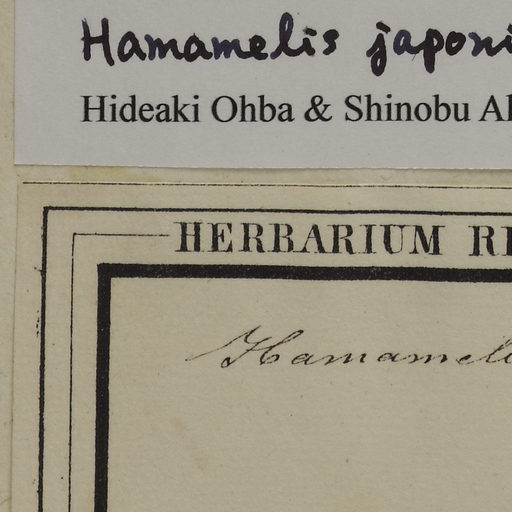 Hamamelis japoni
Hideaki Ohba & Shinobu Ak
HERBARIUM RE
Hamameli